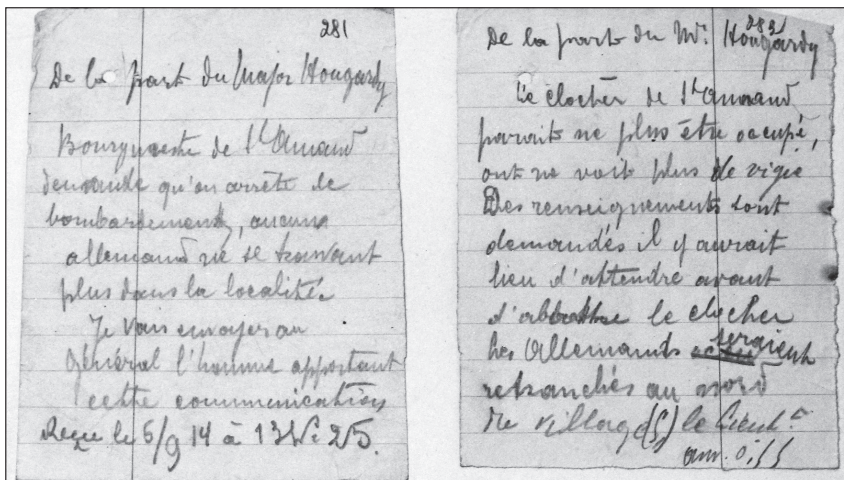 281
De la part du Major Hougardy
Bourgmestre de St Amand
demande qu'on arrête le
bombardement, aucun
allemand ne se trouvant
plus dans la localité.
Je vais envoyer au
général l'homme apportant
cette communication
Reçue le 6/9 14 à 13h 25.
282
De la part du M. Hougardy
Le clocher de St Amand
parait ne plus être occupé,
ont ne voit plus de vigie
Des renseignements sont
demandés il y aurait
lieu d'attendre avant
d'abbattre le clocher
les Allemands seraient
retranchés au nord
de village (S) le Lieut.